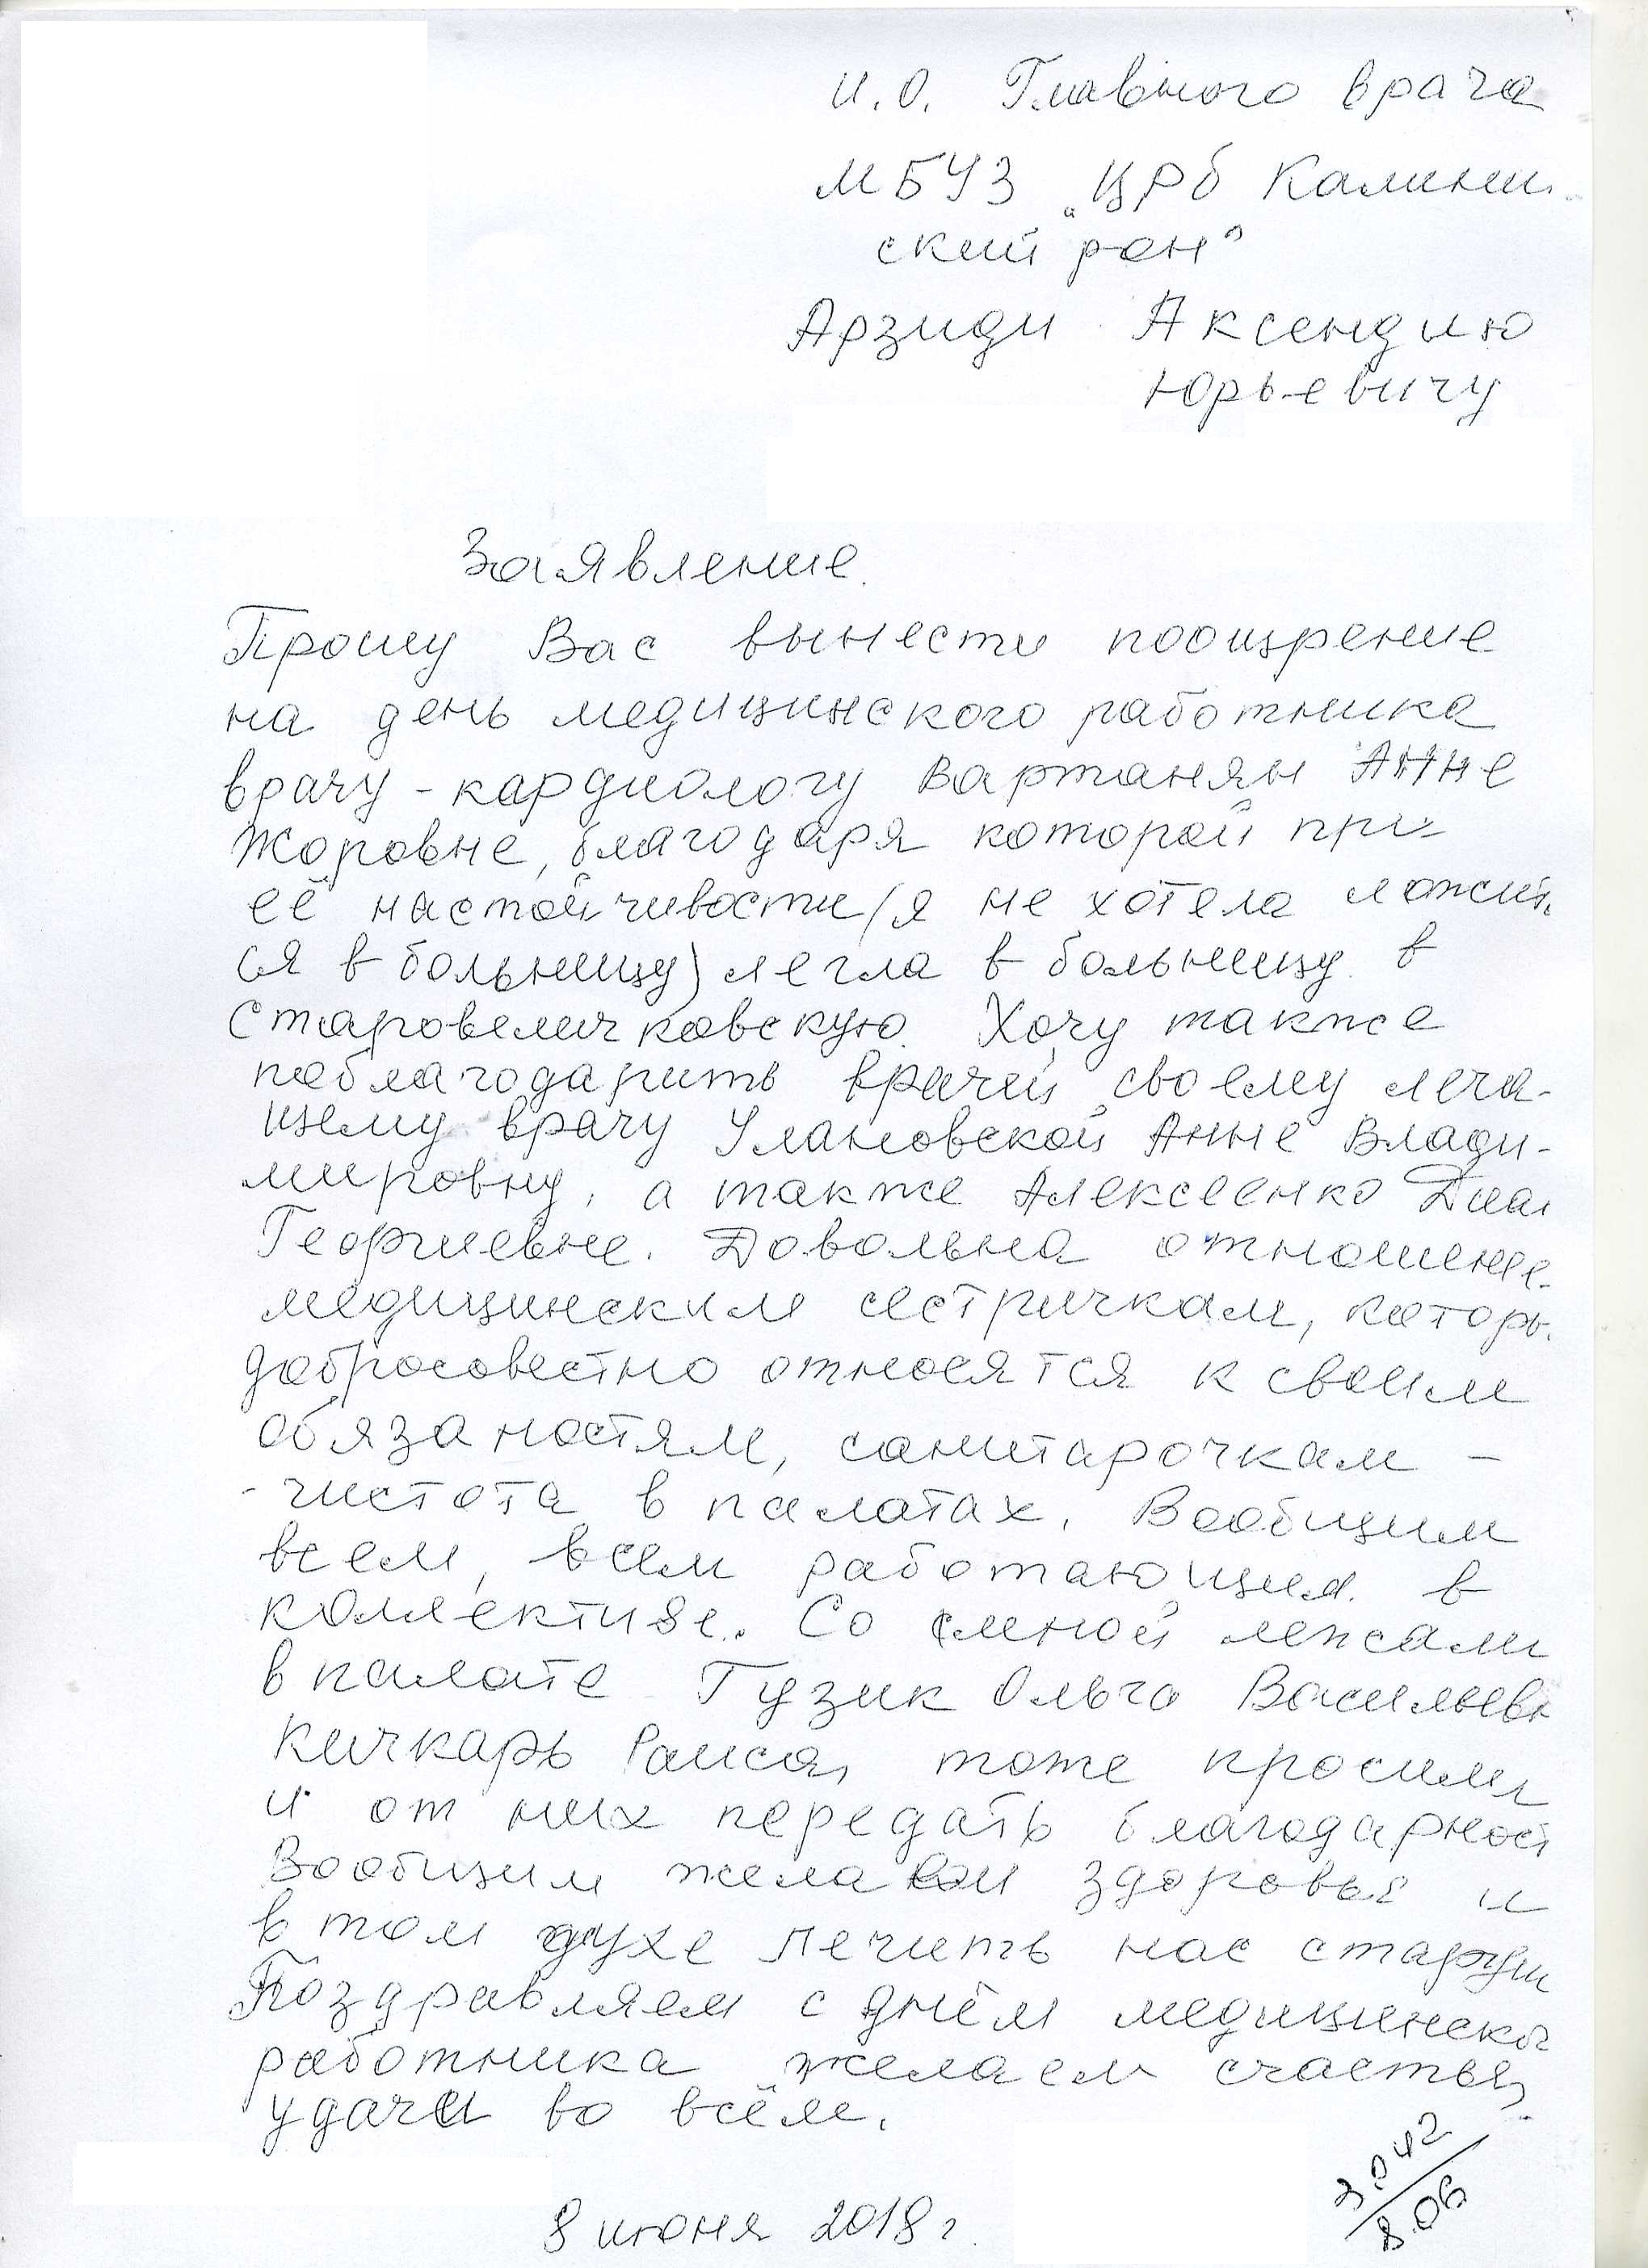 И.О. Главного врача
МБУЗ „ЦРб Калинин
ский р-он"
Арзиди Аксендию
Юрьевичу
Заявление.
Прошу Вас вынести поощрение
на день медицинского работника
врачу-кардиологу Вартанян Анне
Жоровне, благодаря которой при
её настойчивости (я не хотела ложить
ся в больницу) легла в больницу в
Старовеличковскую. Хочу также
поблагодарить врачей своему леча-
щему врачу Улановской Анне Влади-
мировну, а также Алексеенко Диан
Георгиевне. Довольна отношение
медицинским сестричкам, которы
добросовестно относятся к своим
обязаностям, санитарочкам -
- чистота в палатах. Вообщим
всем, всем работающим в
коллективе. Со смной лежали
в палате Гузик Ольга Васильевн
Кичкарь Раиса, тоже просили
и от них передать благодарност
Вообщим желаем здоровья и
в том духе лечить нас старуш
Поздравляем с днём медицинско
работника желаем счастья,
удачи во всём.
8 июня 2018 г.
3.042
8.06